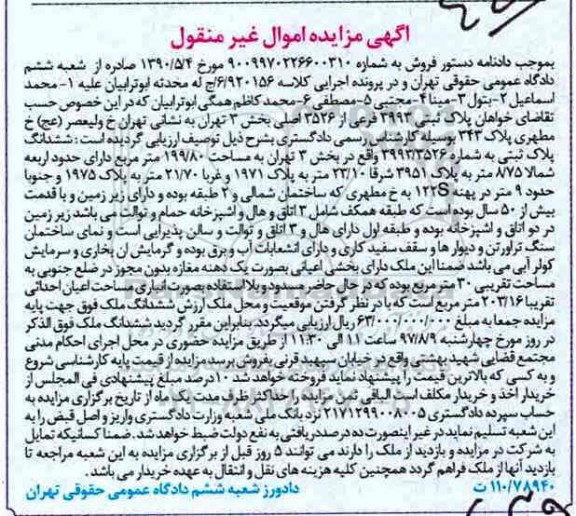 آگهی مزایده اموال غیر منقول
بموجب دادنامه دستور فروش به شماره ۹۰۰۹۹۷۰۲۲۶۶۰۰۳۱۰ مورخ ۱۳۹۰/۵/۴ صادره از شعبه ششم
دادگاه عمومی حقوقی تهران و در پرونده اجرایی کلاسه ۶/۹۲۰۱۵۶/ج له محدثه ابوترابیان علیه ۱- محمد
اسماعیل ۲- بتول ۳- مینا ۴- مجتبی ۵- مصطفی ۶- محمد کاظم همگی ابوترابیان که در این خصوص حسب
تقاضای خواهان پلاک ثبتی ۳۹۹۳ فرعی از ۳۵۲۶ اصلی بخش ۳ تهران به نشانی تهران خ ولیعصر (عج) خ
مطهری پلاک ۳۴۳ بوسیله کارشناس رسمی دادگستری بشرح ذیل توصیف ارزیابی گردیده است: ششدانگ
پلاک ثبتی به شماره ۳۹۹۳/۳۵۲۶ واقع در بخش ۳ تهران به مساحت ۱۹۹/۸۰ متر مربع دارای حدود اربعه
شمالا ۸/۷۵ متر به پلاک ۳۹۵۱ شرقا ۲۳/۱۰ متر به پلاک ۱۹۷۱ و غربا ۲۱/۷۰ متر به پلاک ۱۹۷۵ و جنوبا
حدود ۹ متر در پهنه S۱۲۲ به خ مطهری که ساختمان شمالی و ۲ طبقه بوده و دارای زیر زمین و با قدمت
بیش از ۵۰ سال بوده است که طبقه همکف شامل ۳ اتاق و هال و اشپزخانه حمام و توالت می باشد زیر زمین
در دو اتاق و اشپزخانه بوده و طبقه اول دارای هال و ۳ اتاق و توالت و سالن پذیرایی است و نمای ساختمان
سنگ تراورتن و دیوار ها و سقف سفید کاری و دارای انشعابات آب و برق بوده و گرمایش ان بخاری و سرمایش
کولر آبی می باشد ضمنا این ملک دارای بخشی اعیانی بصورت یک دهنه مغازه بدون مجوز در ضلع جنوبی به
مساحت تقریبی ۳۰ متر مربع بوده که در حال حاضر مسدود و بلا استفاده بصورت انباری مساحت اعیان احداثی
تقریبا ۲۰۳/۱۶ متر مربع است که با در نظر گرفتن موقعیت و محل ملک ارزش ششدانگ ملک فوق جهت پایه
مزایده جمعا به مبلغ ۶۳/۰۰۰/۰۰۰/۰۰۰ ریال ارزیابی میگردد. بنابراین مقرر گردید ششدانگ ملک فوق الذکر
در روز مورخ چهارشنبه ۹۷/۸/۹ ساعت ۱۱ الی ۱۱:۳۰ از طریق مزایده حضوری در محل اجرای احکام مدنی
مجتمع قضایی شهید بهشتی واقع در خیابان سپهبد قرنی بفروش برسد مزایده از قیمت پایه کارشناسی شروع
و به کسی که بالاترین قیمت را پیشنهاد نماید فروخته خواهد شد ۱۰ درصد مبلغ پیشنهادی فی المجلس از
خریدار اخذ و خریدار مکلف است الباقی ثمن مزایده را حداکثر ظرف مدت یک ماه از تاریخ برگزاری مزایده به
حساب سپرده دادگستری ۲۱۷۱۲۹۹۰۰۸۰۰۵ نزد بانک ملی شعبه وزارت دادگستری واریز و اصل قبض را به
این شعبه تسلیم نماید در غیر اینصورت ده درصد دریافتی به نفع دولت ضبط خواهد شد. ضمنا کسانیکه تمایل
به شرکت در مزایده و بازدید از ملک را دارند می توانند ۵ روز قبل از برگزاری مزایده به این شعبه مراجعه تا
بازدید آنها از ملک فراهم گردد همچنین کلیه هزینه های نقل و انتقال به عهده خریدار می باشد.
۱۱۰/۷۸۹۴۰ ت دادورز شعبه ششم دادگاه عمومی حقوقی تهران